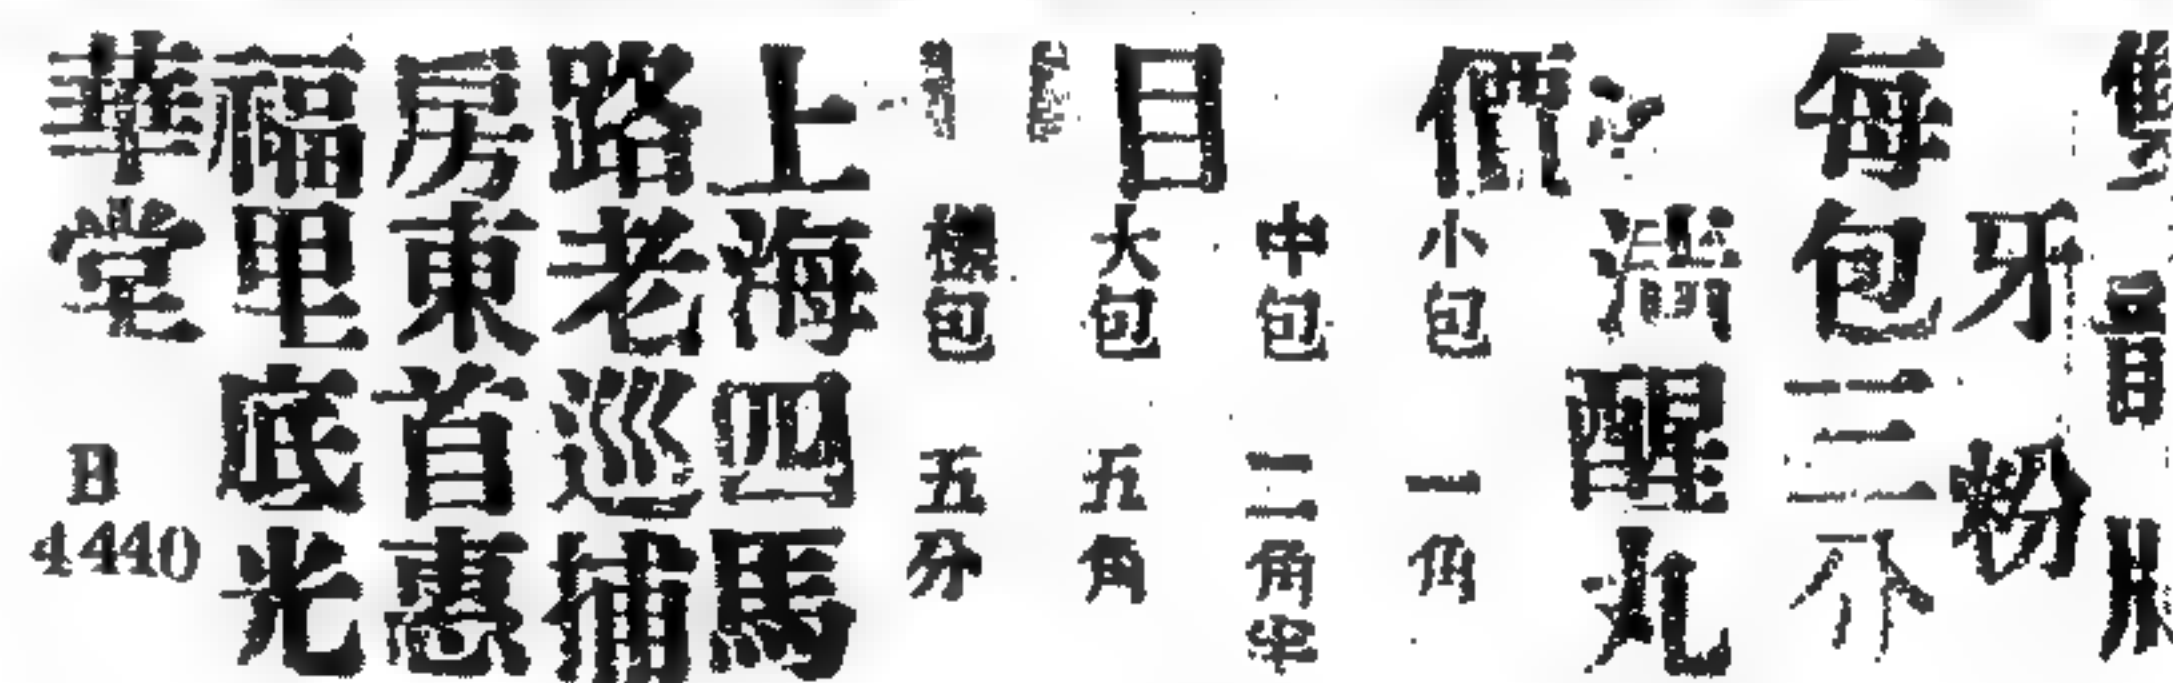 牙粉
每包三分
醒丸
價小包一角
中包二角半
目大包五角
包五分
上海四馬
路老巡捕
房東首惠
福里底光
華堂
B
4440